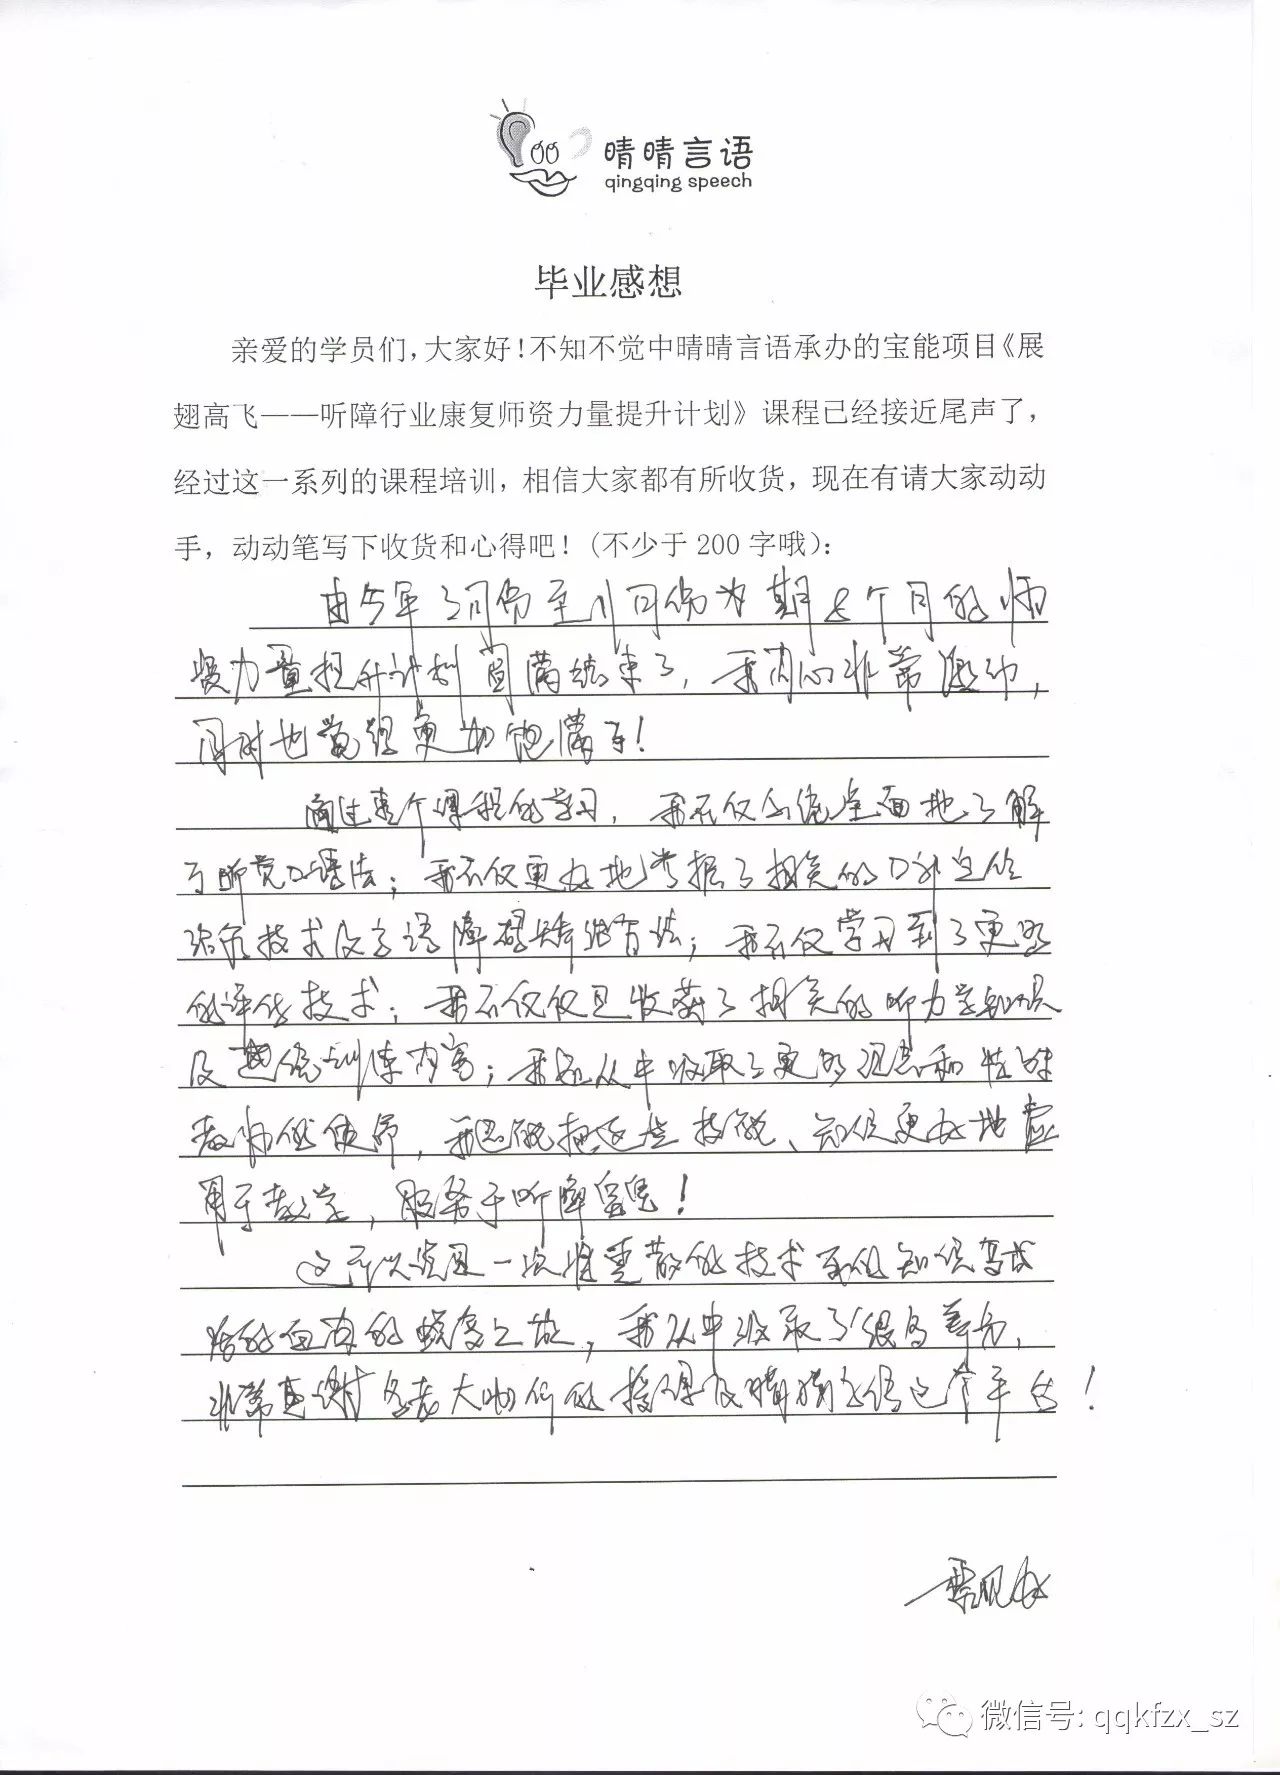 晴晴言语
qingqing speech
毕业感想
亲爱的学员们，大家好！不知不觉中晴晴言语承办的宝能项目《展
翅高飞——听障行业康复师资力量提升计划》课程已经接近尾声了，
经过这一系列的课程培训，相信大家都有所收货，现在有请大家动动
手，动动笔写下收货和心得吧！（不少于 200 字哦）：
由今年3月份至11月份为期 个月的师
资力量提升计划圆满结束了，我内心非常激动，
同时也觉得更加饱满了！
通过整个课程的学习，我不仅 全面地了解
了听觉口语法；我不仅更好地掌握了相关的口
技术及言语障碍矫治方法；我不仅学习到了更多
的评估技术；我不仅仅且收获了相关的听力学知识
及 训练内容；我还从中汲取了更多 和
教师的使命，我 能把这些技能、知识更好地应
用于教学，服务于听障 ！
这可以说是一次将零散的技术 知识
的 的 之旅，我从中汲取了很多养分，
非常感谢各 大咖们的授课及晴晴言语这个平台！
微信号: qqkfzx_sz